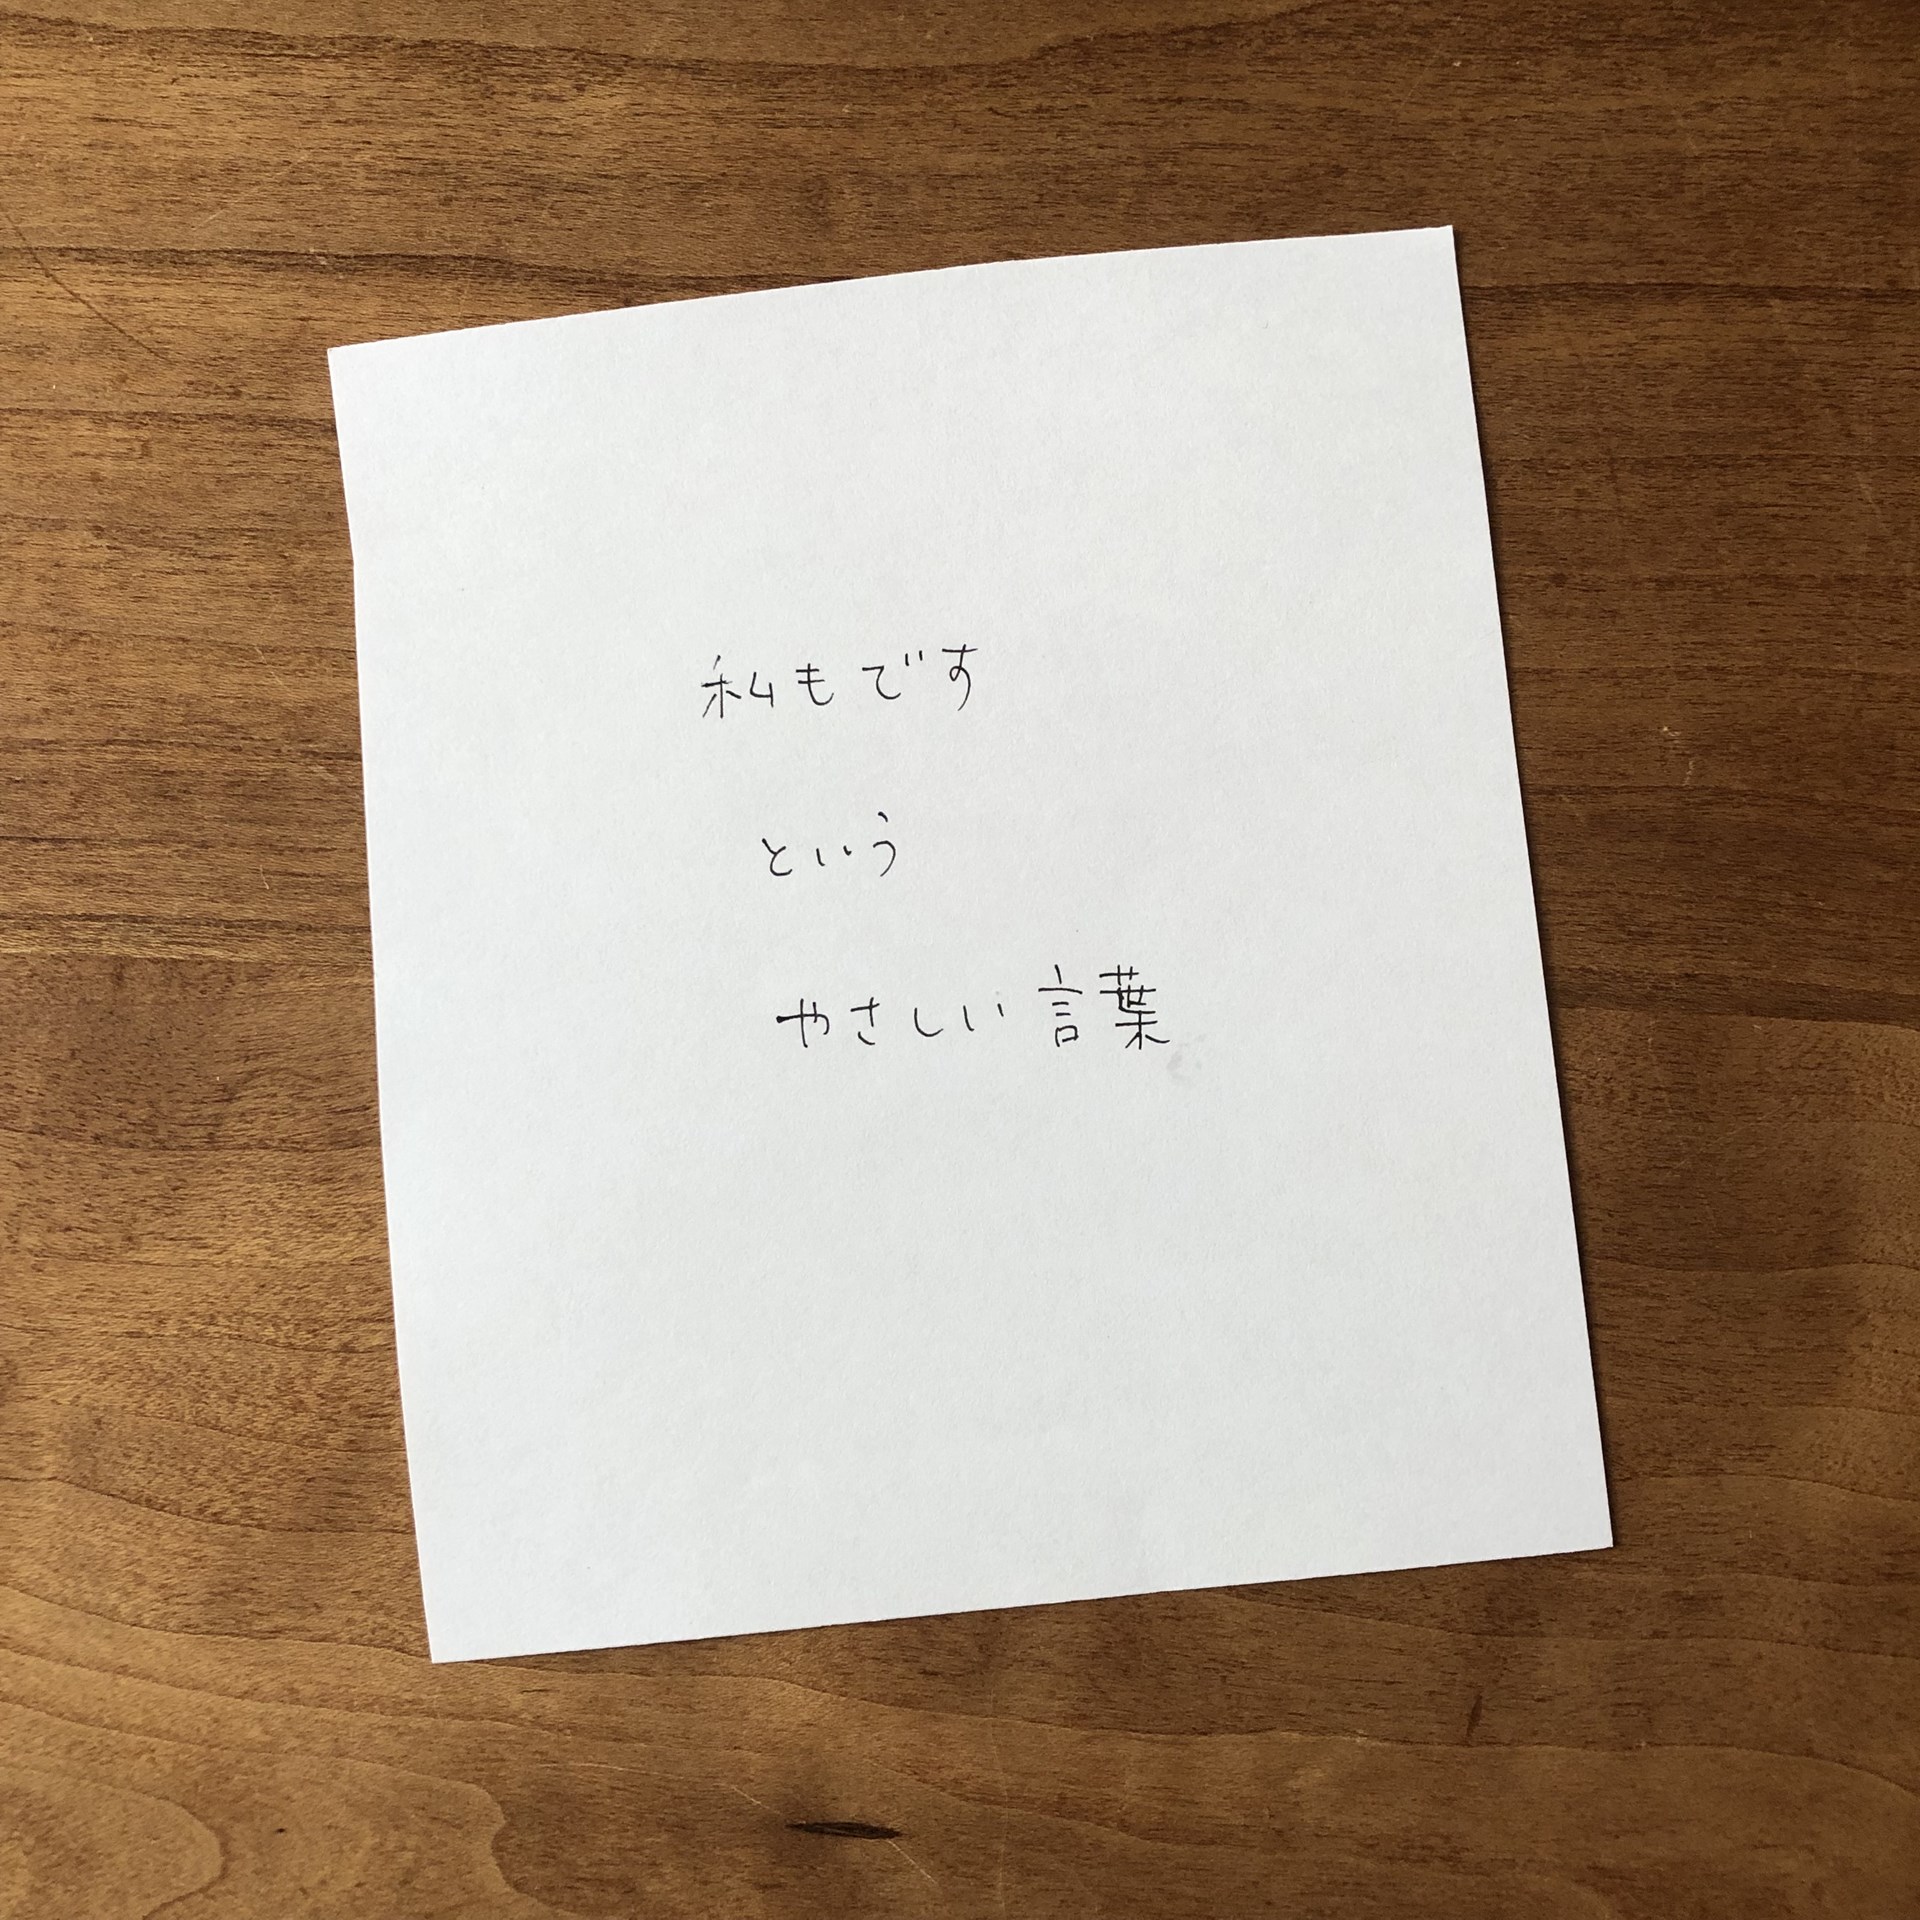 私もです
という
やさしい言葉